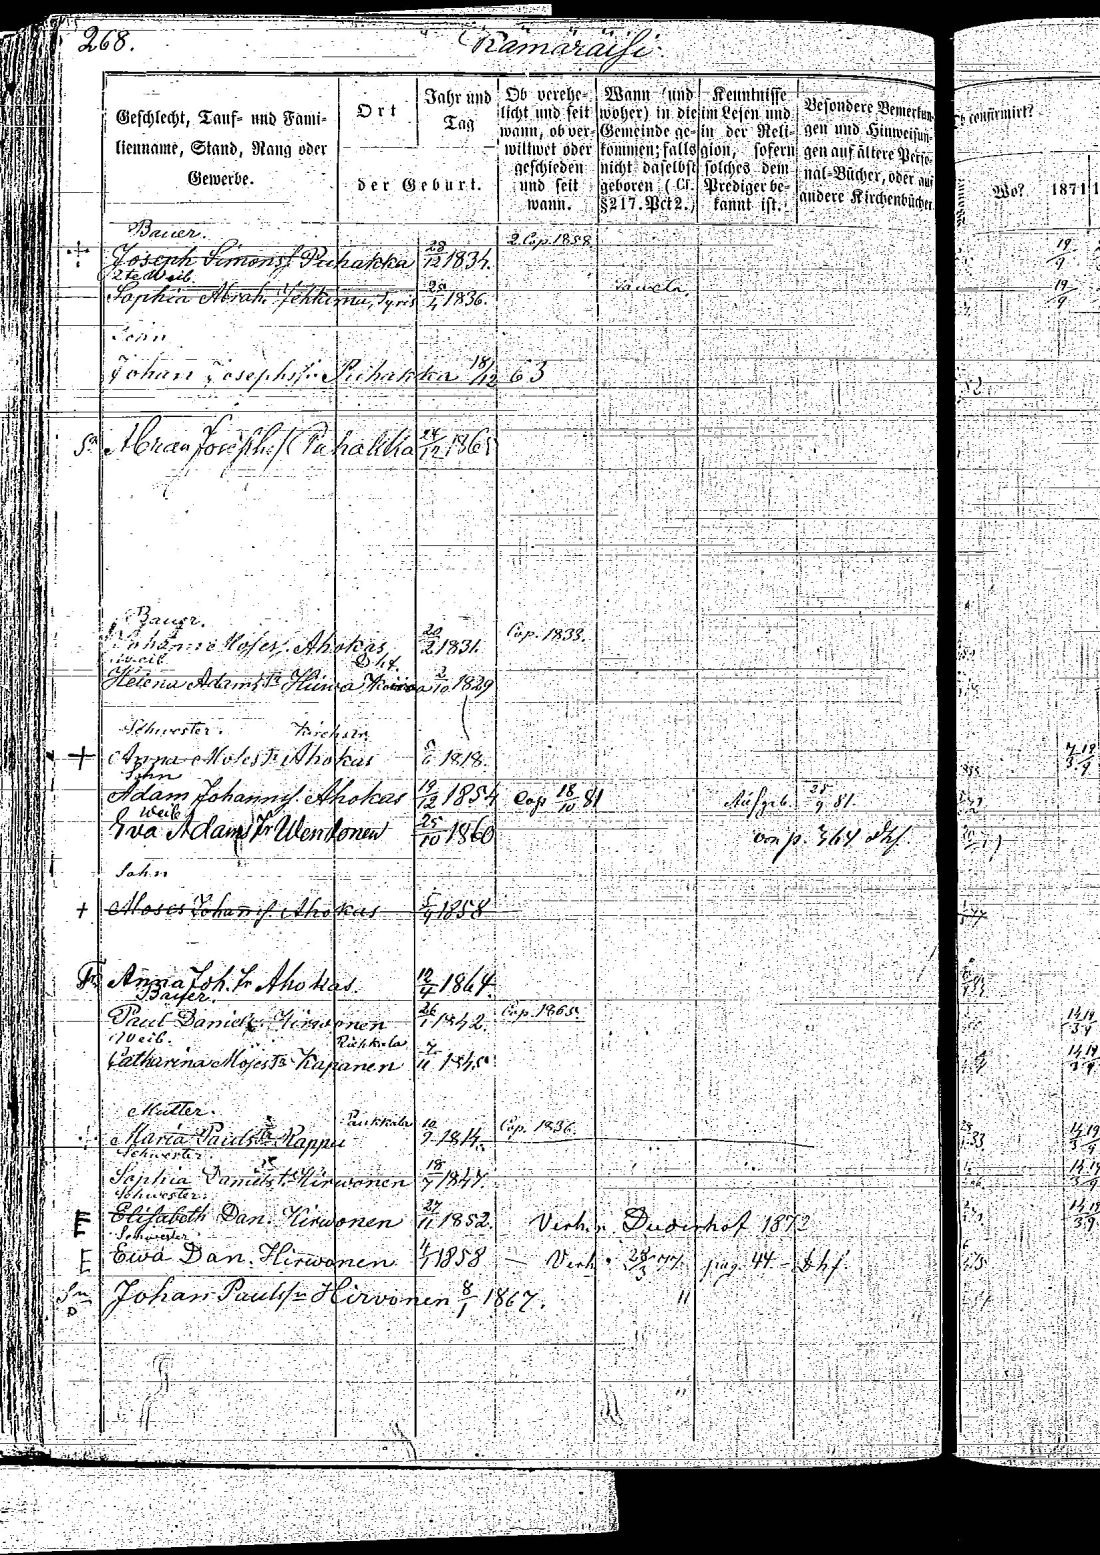 268.
Kämäräisi.
Geschlecht, Tauf- und Fami-
lienname, Stand, Rang oder
Gewerbe.
Ort
der Geburt.
Jahr und
Tag
Ob verehe-
licht und seit
wann, ob ver-
wittwet oder
geschieden
und seit
wann.
Wann (und
woher) in die
Gemeinde ge-
kommen; falls
nicht daselbst
geboren (Cf.
§217. Pct 2.)
Kenntnisse
im Lesen und
in der Reli-
gion, sofern
solches dem
Prediger be-
kannt ist.
Besondere Bemerkun-
gen und Hinweisun-
gen auf ältere Perso-
nal-Bücher, oder auf
andere Kirchenbücher
confirmirt?
Wann?
Wo?
1871
Bauer.
Joseph Simons. Puhakka 28/12 1834. 2 Cop. 1858 19/9
2te Weib.
Sophia Abrah. 1836. 19/9
Sohn
Johan Josephs. Puhakka 18/12 63
Sn Abram Josephs. Puhakka 24/12 1865
Bauer.
Johann Moses. Ahokas 20/2 1831. Cop. 1833.
Weib. Dhf.
Helena Adams Tr Hirwo 1829
Schwester.
+ Anna Moses Tr Ahokas 1818.
Sohn
Adam Johanns. Ahokas 19/12 1854 Cop 18/10 81 Aufgeb. 25/9 81.
Weib
Eva Adams Tr Wendonen 25/10 1860 von p. 364 Dhf.
Sohn
+ Moses Johanns. Ahokas 5/9 1858
Tr Anna Joh. Tr Ahokas. 12/4 1864.
Bauer.
Paul Daniels. Hirwonen 26/1 1842. Cop. 1865. 14/3 19/9
Weib.
Catharina Moses Tr Kapanen 7/11 1845 14/3 19/9
Mutter.
Maria Pauls Tr Rappu Paukkala 10/9 1814. Cop. 1836. 14/3 19/9
Schwester.
Sophia Daniels Tr Hirwonen 18/7 1847. 14/3 19/9
Schwester.
E Elisabeth Dan. Hirwonen 27/11 1852. Verh. n. Duderhof 1872 14/3 19/9
Schwester
E Ewa Dan. Hirwonen 1858 — Verh. pag. 44 - Dhf.
Sn Johan Pauls Sn Hirvonen 8/1 1867. "